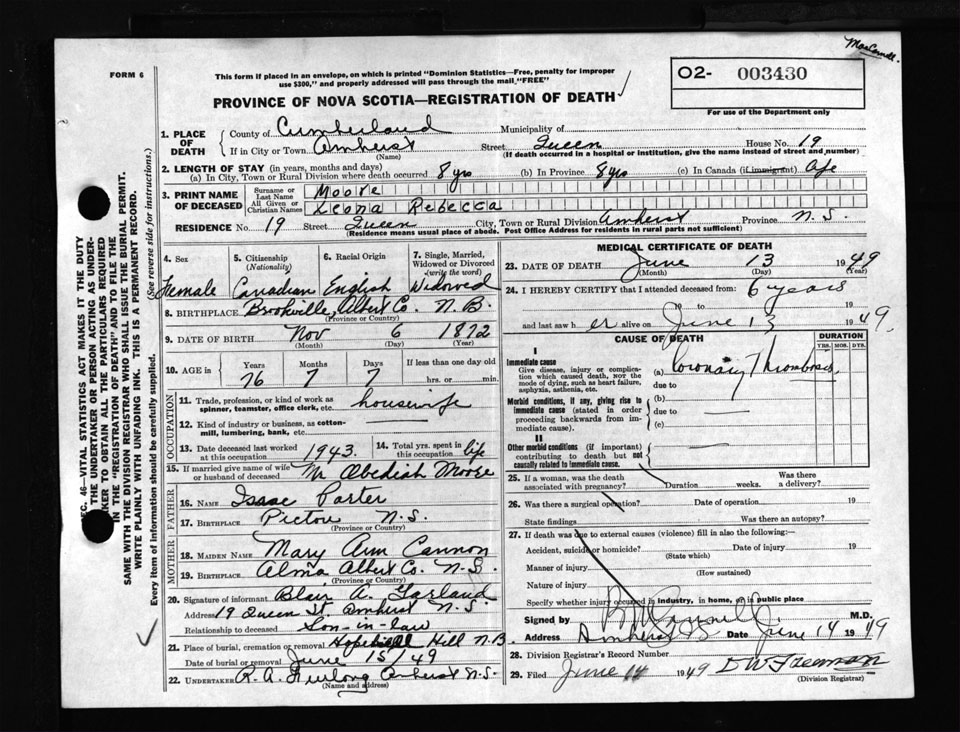 MacConnell.
FORM 6
This form if placed in an envelope, on which is printed "Dominion Statistics—Free, penalty for improper
use $300," and properly addressed will pass through the mail, "FREE"
O2- 003430
For use of the Department only
PROVINCE OF NOVA SCOTIA—REGISTRATION OF DEATH
1. PLACE OF DEATH { County of Cumberland Municipality of
If in City or Town Amherst Street Queen House No. 19
(Name) (If death occurred in a hospital or institution, give the name instead of street and number)
2. LENGTH OF STAY (in years, months and days)
(a) In City, Town or Rural Division where death occurred 8 yrs (b) In Province 8 yrs (c) In Canada (if immigrant) life
3. PRINT NAME OF DECEASED { Surname or Last Name Moore
All Given or Christian Names Leona Rebecca
RESIDENCE No. 19 Street Queen City, Town or Rural Division Amherst Province N.S.
(Residence means usual place of abode. Post Office Address for residents in rural parts not sufficient)
4. Sex 5. Citizenship (Nationality) 6. Racial Origin 7. Single, Married, Widowed or Divorced (write the word)
Female Canadian English Widowed
8. BIRTHPLACE Brookville, Albert Co. N.B.
(Province or Country)
9. DATE OF BIRTH Nov 6 1872
(Month) (Day) (Year)
10. AGE in { Years Months Days If less than one day old
76 7 7 hrs. or min.
OCCUPATION
11. Trade, profession, or kind of work as
spinner, teamster, office clerk, etc. housewife
12. Kind of industry or business, as cotton-
mill, lumbering, bank, etc.
13. Date deceased last worked at this occupation 1943. 14. Total yrs. spent in this occupation life
15. If married give name of wife
or husband of deceased Mr Obediah Moore
FATHER
16. NAME Isaac Porter
17. BIRTHPLACE Pictou N.S.
(Province or Country)
MOTHER
18. MAIDEN NAME Mary Ann Cannon
19. BIRTHPLACE Alma Albert Co. N.S.
(Province or Country)
20. Signature of informant Blair A. Garland
Address 19 Queen St. Amherst N.S.
Relationship to deceased Son-in-law
21. Place of burial, cremation or removal Hopewell Hill N.B.
Date of burial or removal June 15/49
22. UNDERTAKER R. A. Furlong Amherst N.S.
(Name and address)
MEDICAL CERTIFICATE OF DEATH
23. DATE OF DEATH June 13 1949
(Month) (Day) (Year)
24. I HEREBY CERTIFY that I attended deceased from: 6 years
19 to 19
and last saw her alive on June 13 1949.
CAUSE OF DEATH DURATION
YRS. MOS. DYS.
I
Immediate cause
Give disease, injury or complica-
tion which caused death, not the
mode of dying, such as heart failure,
asphyxia, asthenia, etc.
(a) Coronary Thrombosis
due to
Morbid conditions, if any, giving rise to
immediate cause (stated in order
proceeding backwards from im-
mediate cause).
(b)
due to
(c)
II
Other morbid conditions (if important)
contributing to death but not
causally related to immediate cause.
25. If a woman, was the death
associated with pregnancy? Duration weeks. Was there a delivery?
26. Was there a surgical operation? Date of operation 19
State findings Was there an autopsy?
27. If death was due to external causes (violence) fill in also the following:—
Accident, suicide or homicide? Date of injury 19
(State which)
Manner of injury
(How sustained)
Nature of injury
Specify whether injury occurred in industry, in home, or in public place
Signed by M.D.
Address Amherst Date June 14 1949
28. Division Registrar's Record Number
29. Filed June 14 1949
(Division Registrar)
SEC. 46—VITAL STATISTICS ACT MAKES IT THE DUTY
THE UNDERTAKER OR PERSON ACTING AS UNDER-
TAKER TO OBTAIN ALL THE PARTICULARS REQUIRED
IN THE "REGISTRATION OF DEATH" AND TO FILE THE
SAME WITH THE DIVISION REGISTRAR WHO SHALL ISSUE THE BURIAL PERMIT.
WRITE PLAINLY WITH UNFADING INK. THIS IS A PERMANENT RECORD.
Every item of information should be carefully supplied. (See reverse side for instructions.)